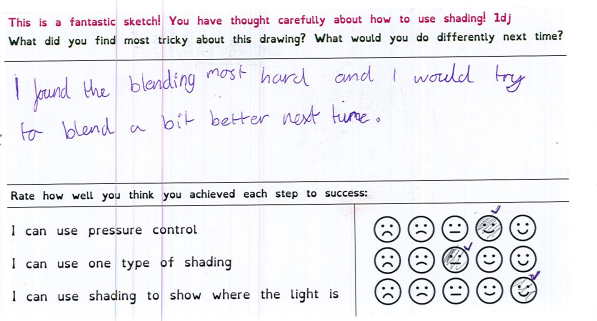 This is a fantastic sketch! You have thought carefully about how to use shading! 1dj
What did you find most tricky about this drawing? What would you do differently next time?
I found the blending most hard and I would try
to blend a bit better next time.
Rate how well you think you achieved each step to success:
I can use pressure control
I can use one type of shading
I can use shading to show where the light is